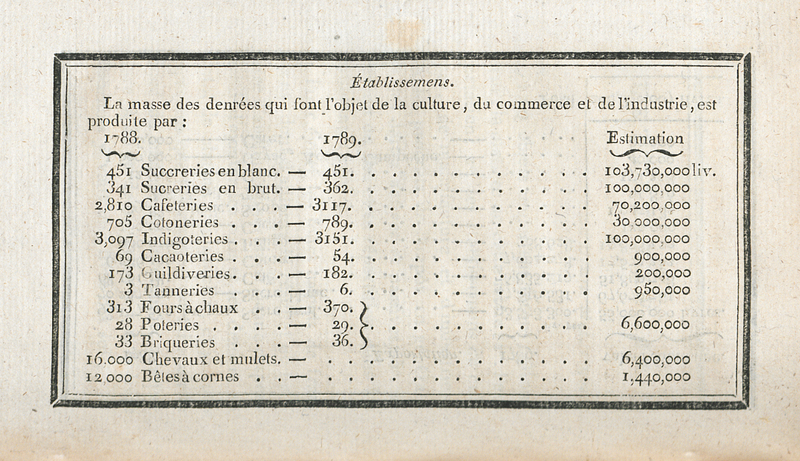 Établissemens.
La masse des denrées qui font l'objet de la culture, du commerce et de l'industrie, est
produite par :
1788. 1789. Estimation
451 Succreries en blanc. — 451. . . . . . . . . . . . 103,730,000 liv.
341 Sucreries en brut. — 362. . . . . . . . . . . . 100,000,000
2,810 Cafeteries . . . — 3117. . . . . . . . . . . . 70,200,000
705 Cotoneries . . . — 789. . . . . . . . . . . . 30,000,000
3,097 Indigoteries . . . — 3151. . . . . . . . . . . . 100,000,000
69 Cacaoteries . . . — 54. . . . . . . . . . . . 900,000
173 Guildiveries. . . — 182. . . . . . . . . . . . 200,000
3 Tanneries . . . — 6. . . . . . . . . . . . 950,000
313 Fours à chaux . . — 370.
28 Poteries . . . . — 29. } . . . . . . . . . . . 6,600,000
33 Briqueries . . . — 36.
16.000 Chevaux et mulets. — . . . . . . . . . . . . 6,400,000
12,000 Bêtes à cornes . . — . . . . . . . . . . . . 1,440,000